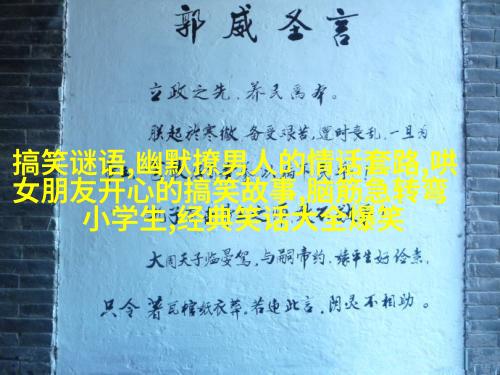 郭威圣言
立政之先,养民为本。
朕起於寒微,备受艰苦,遭时丧乱,一旦为
搞笑谜语,幽默撩男人的情话套路,哄
女朋友开心的搞笑故事,脑筋急转弯
小学生,经典笑话大全爆笑
大周天子临晏驾,与嗣帝约,缘平生好俭素,
只令著瓦棺纸衣葬。若违此言,阴灵不相助。